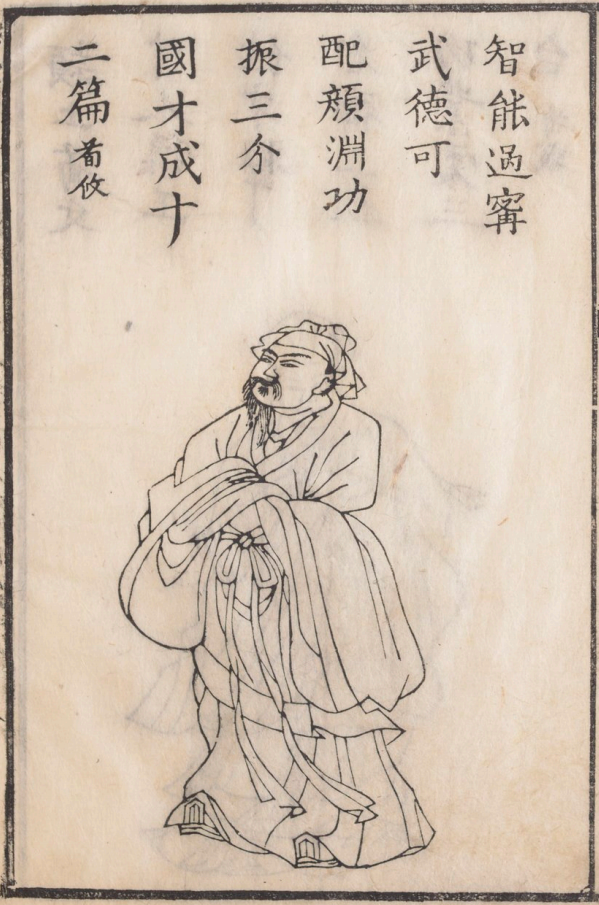 智能過甯
武德可
配顔淵功
振三分
國才成十
二篇 荀攸